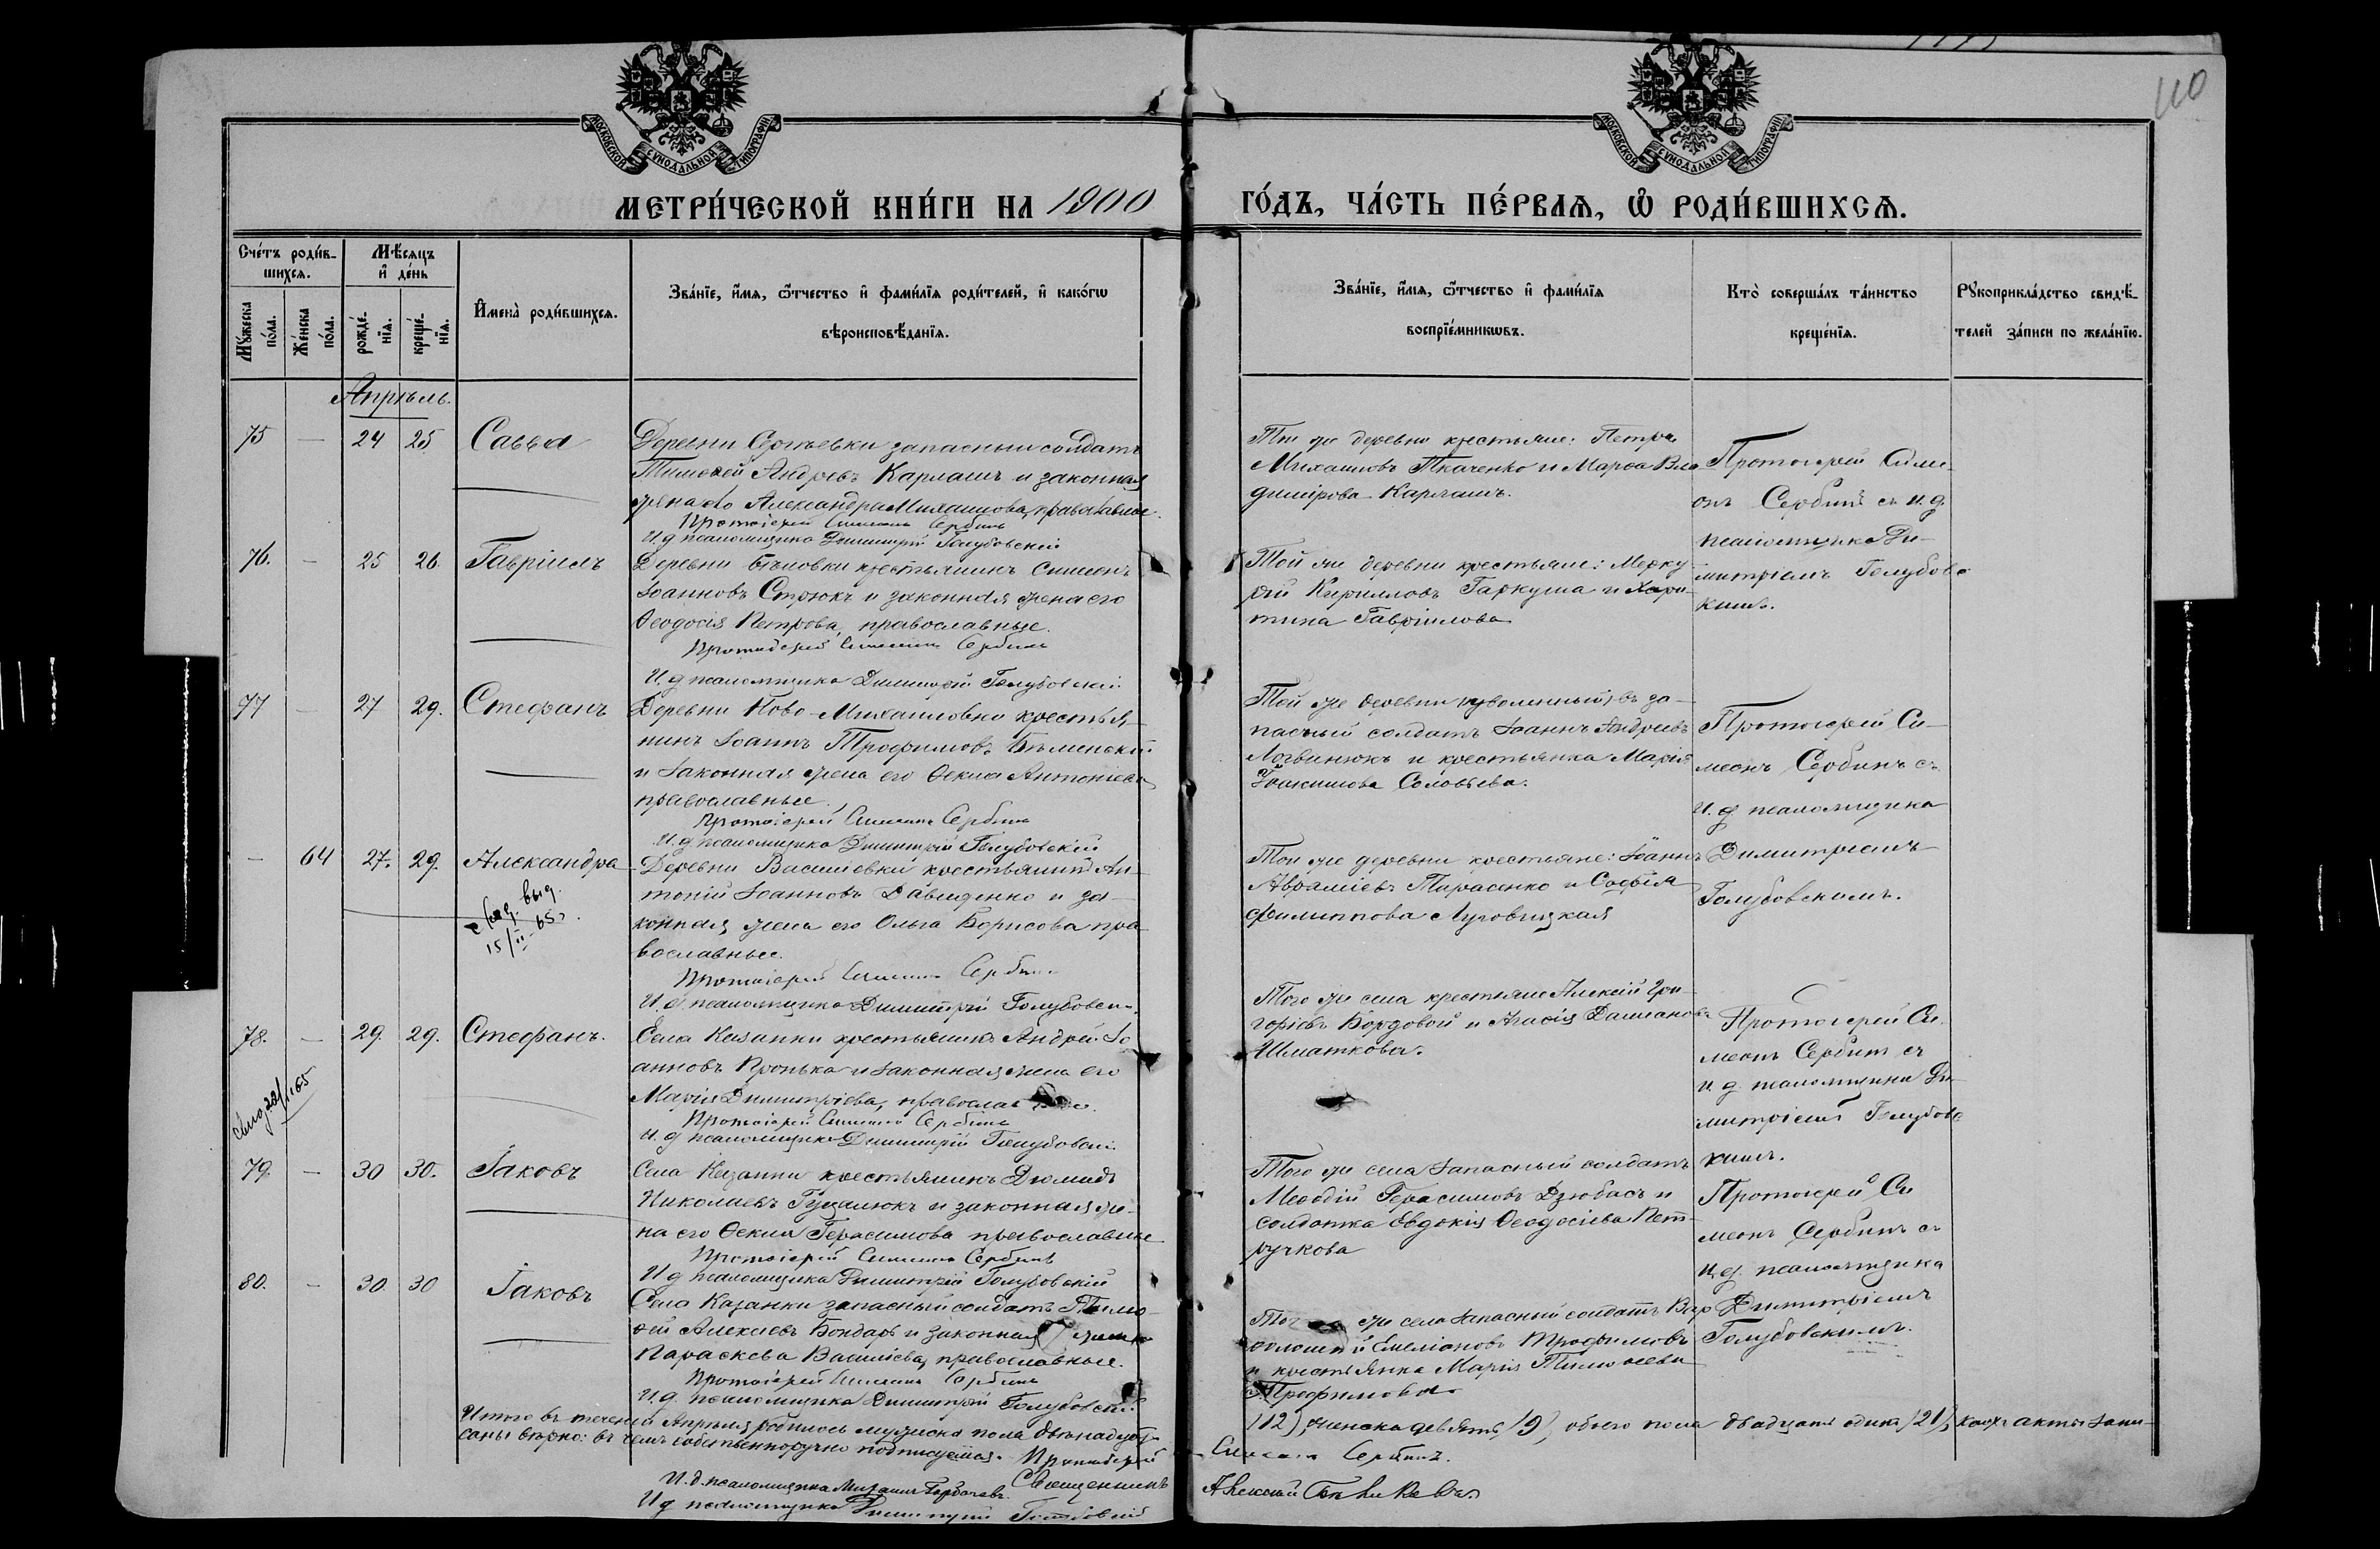 110
МОСКОВСКОЙ СУНОДАЛЬНОЙ ТИПОГРАФІИ
МОСКОВСКОЙ СУНОДАЛЬНОЙ ТИПОГРАФІИ
МЕТРИ́ЧЕСКОЙ КНИ́ГИ НА 1900 ГО́ДЪ, ЧА́СТЬ ПЕ́РВАѦ, Ѽ РОДИ́ВШИХСѦ.
Сче́тъ роди́в-
шихсѧ.
Мꙋ́жеска по́ла.
Же́нска по́ла.
Мѣ́сѧцъ
и҆ де́нь
рожде́-
нїѧ.
креще́-
нїѧ.
И҆мена̀ роди́вшихсѧ.
Зва́нїе, и҆́мѧ, ѻ҆́тчество и҆ фами́лїѧ роди́телей, и҆ како́гѡ
вѣроисповѣ́данїѧ.
Зва́нїе, и҆́мѧ, ѻ҆́тчество и҆ фами́лїѧ
воспрїе́мникѡвъ.
Кто̀ соверша́лъ та́инство
креще́нїѧ.
Рꙋкоприкла́дство свидѣ́-
телей за́писи по жела́нїю.
Апрѣль.
75 — 24 25 Савва
Деревни Сергѣевки запасный солдатъ
Тимоѳей Андреевъ Карлашъ и законная
жена его Александра Михаилова, православные.
Протоіерей Симеонъ Сербинъ
И. д псаломщика Димитрій Голубовскій
Той же деревни крестьяне: Петръ
Михаиловъ Ткаченко и Марѳа Вла
димірова Карлашъ.
Протоіерей Симе-
онъ Сербинъ съ и. д.
псаломщика Ди-
митріемъ Голубовс
кимъ.
76. — 25 26. Гавріилъ
Деревни Бѣловки крестьянинъ Симеонъ
Іоанновъ Стрюкъ и законная жена его
Ѳеодосія Петрова, православные.
Протоіерей Симеонъ Сербинъ
И. д псаломщика Димитрій Голубовскій
Той же деревни крестьяне: Мерку
рій Кирилловъ Гаркуша и Хари-
тина Гавріилова
77 — 27 29. Стефанъ
Деревни Ново-Михаиловки крестья-
нинъ Іоаннъ Трофимовъ
и законная жена его Ѳекла Антоніева
православные.
Протоіерей Симеонъ Сербинъ
И. д псаломщика Димитрій Голубовскій
Той же деревни уволенный въ за-
пасный солдатъ Іоаннъ Андреевъ
Логвинюкъ и крестьянка Марія
Іоакимова Соловьева.
Протоіерей Си-
меонъ Сербинъ съ
и. д псаломщика
Димитріемъ
Голубовскимъ.
— 64 27. 29. Александра
выд.
15/II-65 г.
Деревни Василіевки крестьянинъ Ан-
тоній Іоанновъ Давиденко и за-
конная жена его Ольга Борисова пра-
вославные.
Протоіерей Симеонъ Сербинъ
И. д. псаломщика Димитрій Голубовскі
Той же деревни крестьяне: Іоаннъ
Авраміевъ Тарасенко и Софія
Филиппова Луговицкая
78. — 29. 29. Стефанъ.
Села Казанки крестьянинъ Андрей Іо
анновъ Пронька и законная жена его
Марія Димитріева, православные.
Протоіерей Симеонъ Сербинъ
И. д псаломщика Димитрій Голубовскій
Того же села крестьяне Алексій Гри-
горіевъ Бордовой и Агаѳія Даміанова
Шматкова.
Протоіерей Си-
меонъ Сербинъ съ
и. д. псаломщика Ди-
митріемъ Голубовс
кимъ.
79. — 30 30. Іаковъ
Села Казанки крестьянинъ Діомидъ
Николаевъ Гуцалюкъ и законная же-
на его Ѳекла Герасимова православные
Протоіерей Симеонъ Сербинъ
И д псаломщика Димитрій Голубовскій
Того же села запасный солдатъ
Меѳодій Герасимовъ Дзюбасъ и
солдатка Евдокія Ѳеодосіева Пет-
ручкова
Протоіерей Си
меонъ Сербинъ съ
и. д. псаломщика
Димитріемъ
Голубовскимъ.
80. — 30. 30 Іаковъ
Села Казанки запасный солдатъ Тимо-
ѳей Алексіевъ Бондарь и законная жена
Параскева Василіева, православные.
Протоіерей Симеонъ Сербинъ
И. д. псаломщика Димитрій Голубовскій
же села запасный солдатъ Вар
ѳоломей Емеліановъ Трофимовъ
и крестьянка Марія Тимоѳеева
Трофимова
Итого въ теченіи Апрѣля родилось мужеска пола двѣнадцать (12), женска девять (9), обоего пола двадцать одинъ (21), акты запи-
саны вѣрно: въ чемъ собственноручно подписуемся. Протоіерей Симеонъ Сербинъ.
Священникъ Алексій
И. д. псаломщика Михаилъ Горбачевъ.
И д псаломщика Димитрій Голубовскій